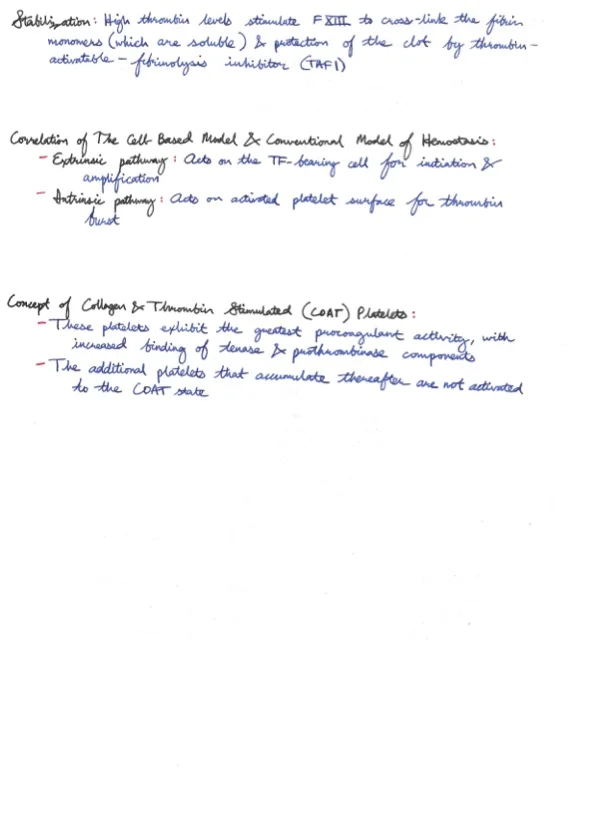 Stabilization: High thrombin levels stimulate F XIII to cross-link the fibrin
monomers (which are soluble) & protection of the clot by thrombin-
activatable-fibrinolysis inhibitor (TAFI)
Correlation of The Cell Based Model & Conventional Model of Hemostasis:
- Extrinsic pathway: Acts on the TF-bearing cell for initiation &
amplification
- Intrinsic pathway: acts on activated platelet surface for thrombin
burst
Concept of Collagen & Thrombin Stimulated (COAT) Platelets:
- These platelets exhibit the greatest procoagulant activity, with
increased binding of tenase & prothrombinase components
- The additional platelets that accumulate thereafter are not activated
to the COAT state